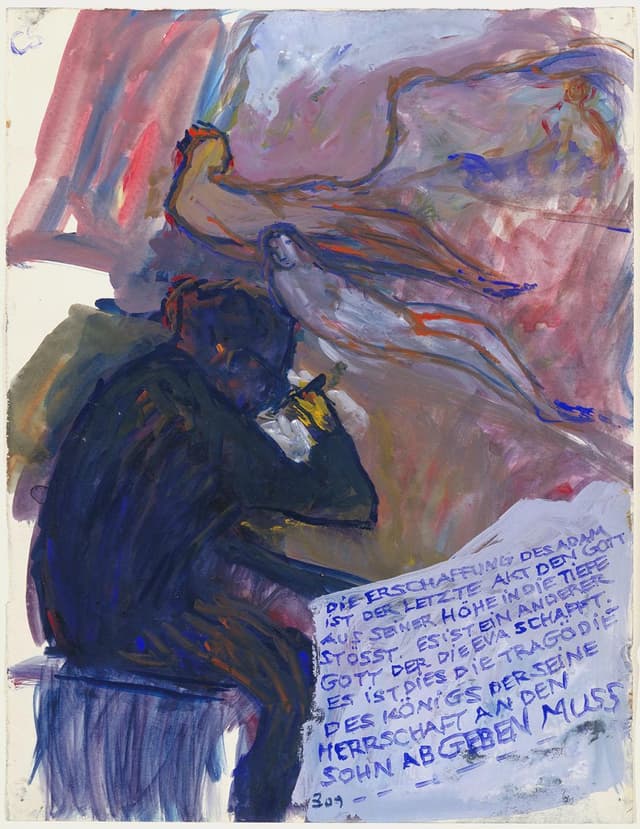 DIE ERSCHAFFUNG DES ADAM
IST DER LETZTE AKT DEN GOTT
AUS SEINER HÖHE IN DIE TIEFE
STÖSST. ES IST EIN ANDERER
GOTT DER DIE EVA SCHAFFT.
ES IST, DIES DIE TRAGÖDIE
DES KÖNIGS DER SEINE
HERRSCHAFT AN DEN
SOHN ABGEBEN MUSS
309